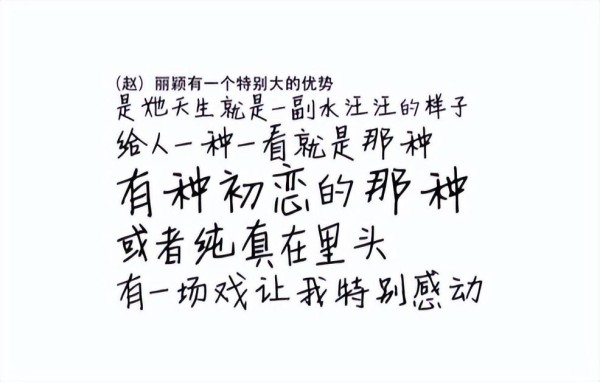 （赵）丽颖有一个特别大的优势
是她天生就是一副水汪汪的样子
给人一种一看就是那种
有种初恋的那种
或者纯真在里头
有一场戏让我特别感动